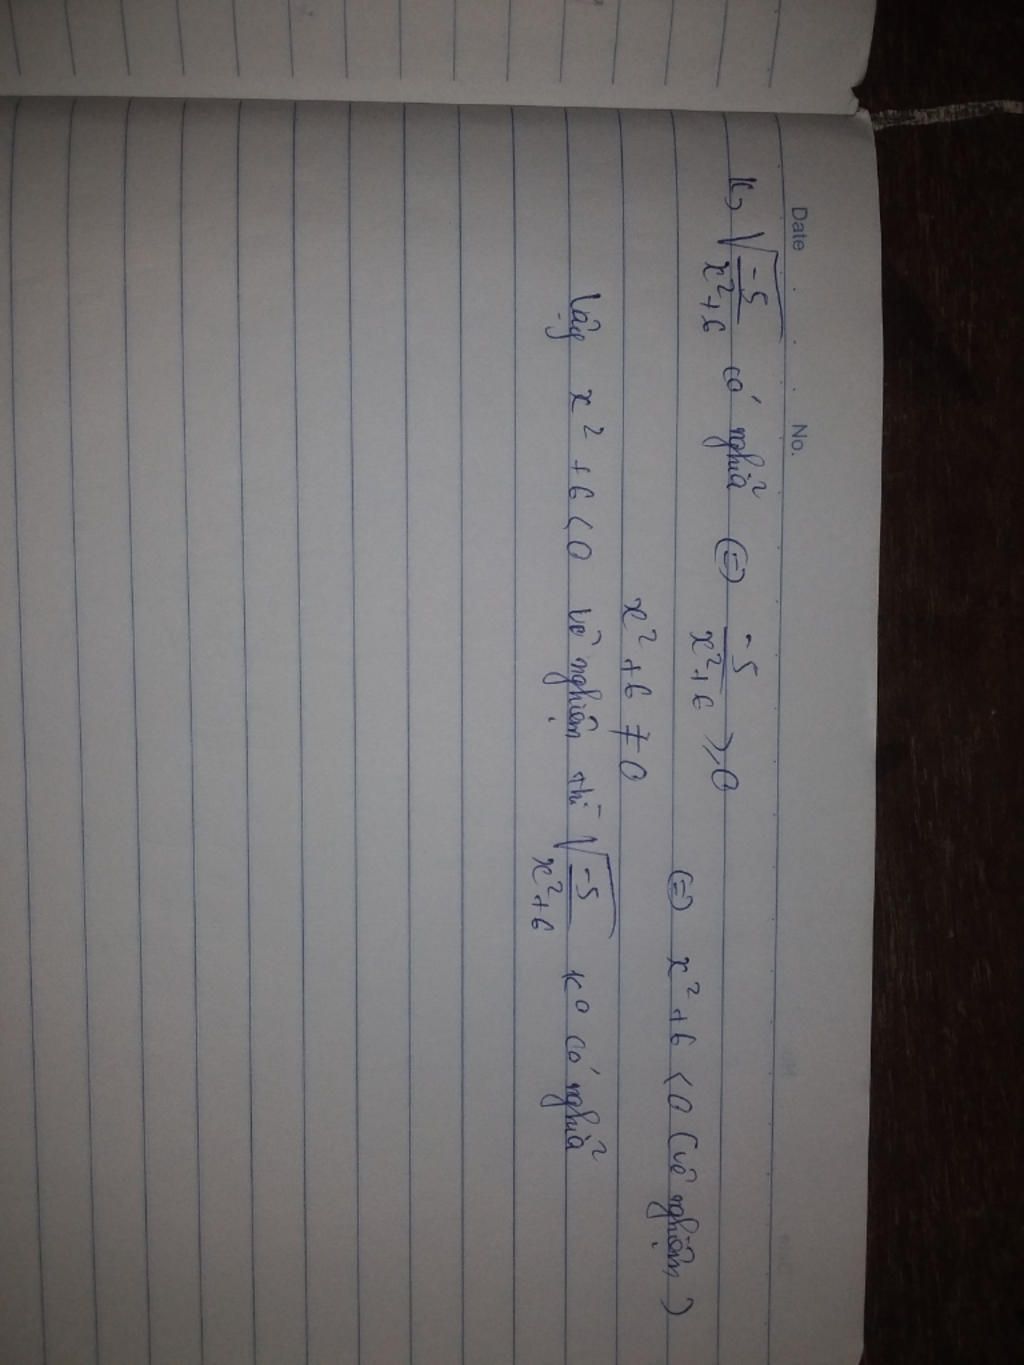 Date No.
k, √(-5/(x²+6)) có nghĩa (=) -5/(x²+6) ≥ 0
(=) x² + 6 < 0 (vô nghiệm)
x² + 6 ≠ 0
Vậy x² + 6 < 0 vô nghiệm thì √(-5/(x²+6)) ko có nghĩa